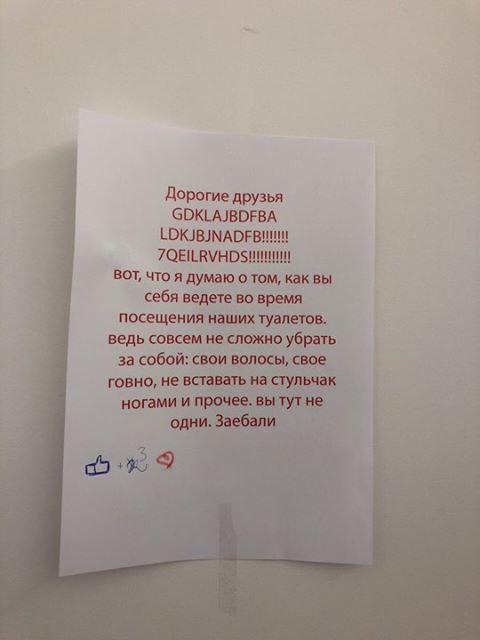 Дорогие друзья
GDKLAJBDFBA
LDKJBJNADFB!!!!!!!
7QEILRVHDS!!!!!!!!!!!
вот, что я думаю о том, как вы
себя ведете во время
посещения наших туалетов.
ведь совсем не сложно убрать
за собой: свои волосы, свое
говно, не вставать на стульчак
ногами и прочее. вы тут не
одни. Заебали
+ 3